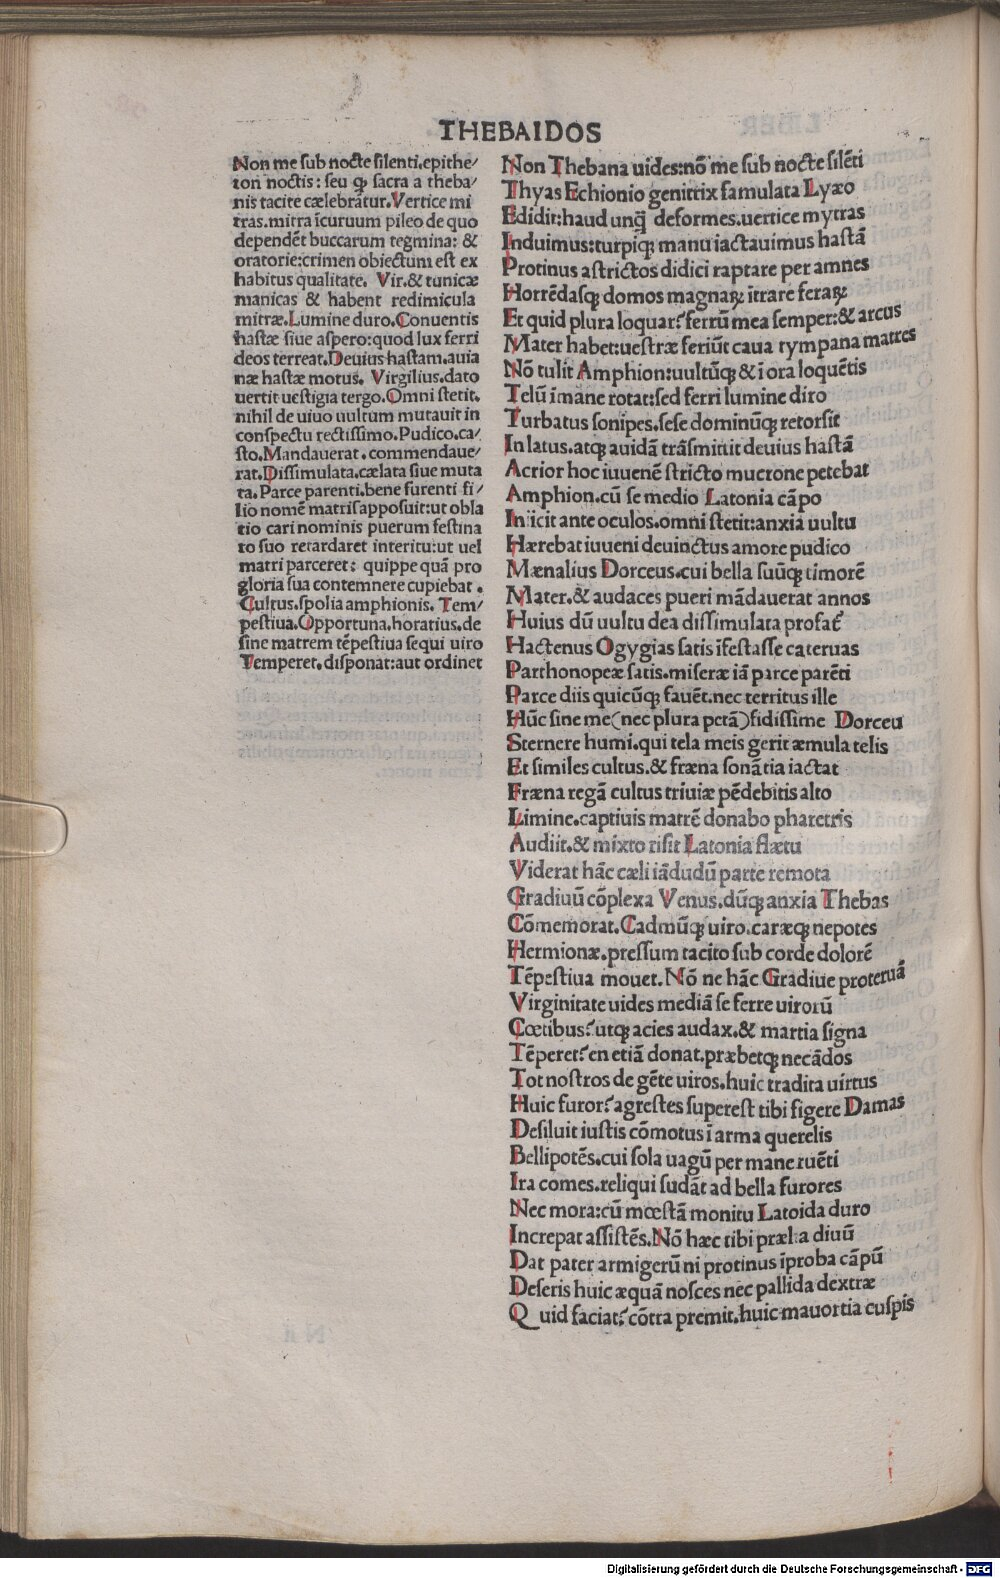 THEBAIDOS
Non me sub nocte silenti.epithe/
ton noctis: seu ꝙ sacra a theba/
nis tacite cælebrātur.Vertice mi
tras.mitra īcuruum pileo de quo
dependēt buccarum tegmina: &
oratorie:crimen obiectum est ex
habitus qualitate. Vir.& tunicæ
manicas & habent redimicula
mitræ.Lumine duro.Conuentis
hastæ siue aspero:quod lux ferri
deos terreat.Deuius hastam.auia
næ hastæ motus. Virgilius.dato
uertit uestigia tergo.Omni stetit.
nihil de uiuo uultum mutauit in
conspectu rectissimo.Pudico.ca/
sto.Mandauerat.commendaue/
rat.Dissimulata.cælata siue muta
ta.Parce parenti.bene furenti fi/
lio nomē matris apposuit:ut obla
tio cari nominis puerum festina
to suo retardaret interitu:ut uel
matri parceret: quippe quā pro
gloria sua contemnere cupiebat.
Cultus.spolia amphionis. Tem/
pestiua.Opportuna.horatius.de
sine matrem tēpestiua sequi uiro
Temperet.disponat:aut ordinet
Non Thebana uides:nō me sub nocte silēti
Thyas Echionio genitrix famulata Lyæo
Edidit:haud unq̄ deformes.uertice mytras
Induimus:turpiqꝫ manu iactauimus hastā
Protinus astrictos didici raptare per amnes
Horrēdasqꝫ domos magnaꝝ ītrare feraꝝ
Et quid plura loquar?ferrū mea semper:& arcus
Mater habet:uestræ feriūt caua tympana matres
Nō tulit Amphion:uultūqꝫ & ī ora loquētis
Telū īmane rotat:sed ferri lumine diro
Turbatus sonipes.sese dominūqꝫ retorsit
In latus.atqꝫ auidā trāsmittit deuius hastā
Acrior hoc iuuenē stricto mucrone petebat
Amphion.cū se medio Latonia cāpo
Iniicit ante oculos.omni stetit:anxia uultu
Hærebat iuueni deuinctus amore pudico
Mænalius Dorceus.cui bella suūqꝫ timorē
Mater.& audaces pueri mādauerat annos
Huius dū uultu dea dissimulata profat᷑
Hactenus Ogygias satis īfestasse cateruas
Parthonopeæ satis.miseræ iā parce parēti
Parce diis quicūqꝫ fauēt.nec territus ille
Hūc sine me(nec plura petā)fidissime Dorceu
Sternere humi.qui tela meis gerit æmula telis
Et similes cultus.& fræna sonātia iactat
Fræna regā cultus triuiæ pēdebitis alto
Limine.captiuis matrē donabo pharetris
Audiit.& mixto risit Latonia flætu
Viderat hāc cæli iādudū parte remota
Gradiuū cōplexa Venus.dūqꝫ anxia Thebas
Cōmemorat.Cadmūqꝫ uiro.caræqꝫ nepotes
Hermionæ.pressum tacito sub corde dolorē
Tēpestiua mouet.Nō ne hāc Gradiue proteruā
Virginitate uides mediā se ferre uirorū
Cœtibus?utqꝫ acies audax.& martia signa
Tēperet?en etiā donat.præbetqꝫ necādos
Tot nostros de gēte uiros.huic tradita uirtus
Huic furor?agrestes superest tibi figere Damas
Desiluit iustis cōmotus ī arma querelis
Bellipotēs.cui sola uagū per mane ruēti
Ira comes.reliqui sudāt ad bella furores
Nec mora:cū mœstā monitu Latoida duro
Increpat assistēs.Nō hæc tibi præl:a diuū
Dat pater armigerū ni protinus īproba cāpū
Deseris huic æquā nosces nec pallida dextræ
Quid faciat?cōtra premit.huic mauortia cuspis
Digitalisierung gefördert durch die Deutsche Forschungsgemeinschaft - DFG